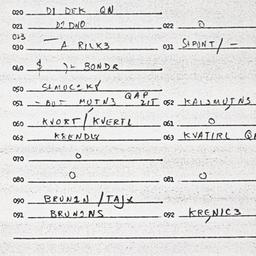 020 DI DEK QN
021 DJ DNO 022 O
023 —
030 A RILK3 031 SIPONT/-
040 $ )- BONDR
050 SLMUC2KY
051 - BUT MUTN3 QAP 2IT 052 KALJMUTNS
060 KVORT/KVERTL 061 O
062 KSENDLY 063 KVATIRL QA
070 O
080 O 081 O
090 BRUN1N/TAJX
091 BRUNONS 092 KRENIC3